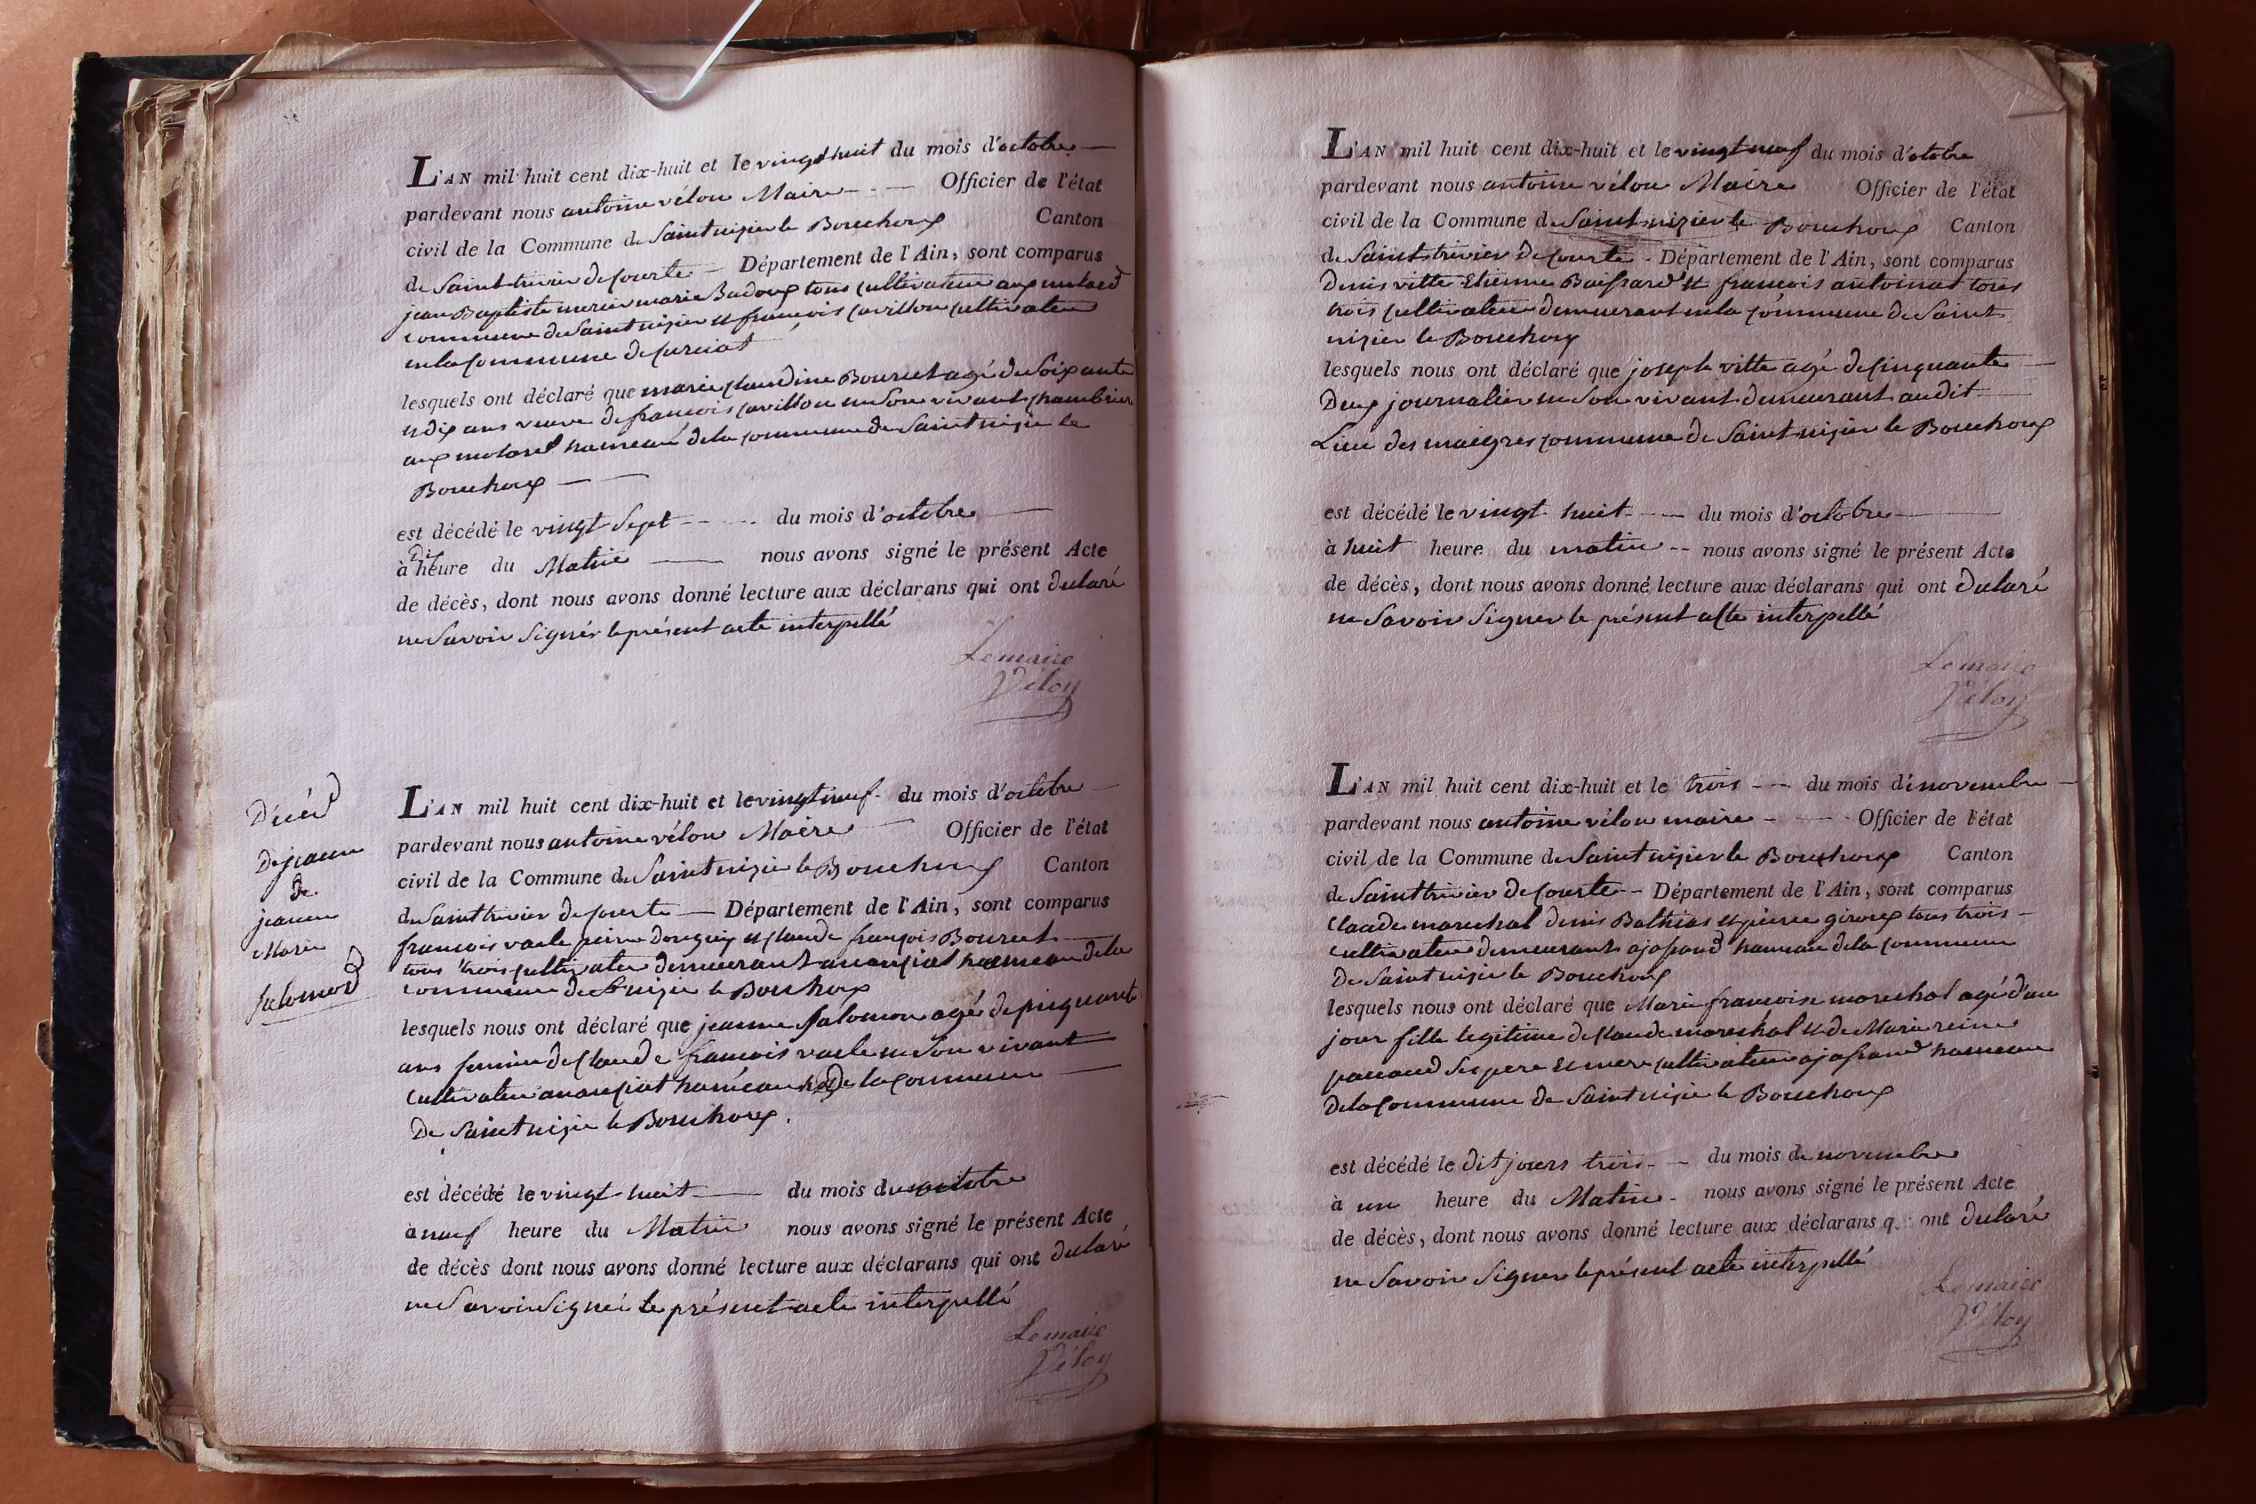 L'AN mil huit cent dix-huit et le vingt huit du mois d'octobre
pardevant nous antoine vélon Maire Officier de l'état
civil de la Commune de Saint nizier le Bouchoux Canton
de Saint trivier de Courte Département de l'Ain, sont comparus
jean Baptiste mercier marie Badoux tous cultivateur aux molard
commune de Saint nizier et francois cavillon cultivateur
en la commune de curciat
lesquels ont déclaré que marie claudine Bourcet agé de Soixante
et dix ans veuve de francois cavillon en Son vivant
aux molard hameau de la commune de Saint nizier le
Bouchoux
est décédé le vingt Sept du mois d'octobre
à Dix heure du Matin nous avons signé le présent Acte
de décès, dont nous avons donné lecture aux déclarans qui ont declaré
ne Savoir Signér le présent acte interpellé
Lemaire
Véloy
Décéd
De jeanne
De
jeanne
Marie
Salomord
L'AN mil huit cent dix-huit et le vingt neuf du mois d'octobre
pardevant nous antoine vélon Maire Officier de l'état
civil de la Commune de Saint nizier le Bouchoux Canton
de Saint trivier de courte Département de l'Ain, sont comparus
francois vacle peirre Donguy et claude françois Bourcet
tous trois cultivateur demeurant hameau de la
commune de St nizier le Bouchoux
lesquels nous ont déclaré que jeanne Salomon agé de cinquante
ans femme de Claude francois vacle en Son vivant
cultivateur hameau de la Commune
De Saint nizier le Bouchoux.
est décédé le vingt huit du mois de octobre
à neuf heure du Matin nous avons signé le présent Acte
de décès dont nous avons donné lecture aux déclarans qui ont declaré
ne Savoir Signer le présent acte interpellé
Lemaire
Véloy
L'AN mil huit cent dix-huit et le vingt neuf du mois d'octobre
pardevant nous antoine vélon Maire Officier de l'état
civil de la Commune de Saint nizier le Bouchoux Canton
de Saint trivier de courte Département de l'Ain, sont comparus
Denis vitte Etienne Buissard et francois antoinat tous
trois cultivateur demeurant en la commune de Saint
nizier le Bouchoux
lesquels nous ont déclaré que joseph vitte agé de Cinquante
Deux journalier en Son vivant demeurant audit
Lieu des maigres commune de Saint nizier le Bouchoux
est décédé le vingt huit du mois d'octobre
à huit heure du matin nous avons signé le présent Acte
de décès, dont nous avons donné lecture aux déclarans qui ont declaré
ne Savoir Signer le présent acte interpellé
Lemaire
Véloy
L'AN mil huit cent dix-huit et le trois du mois de novembre
pardevant nous antoine vélon maire Officier de l'état
civil de la Commune de Saint nizier le Bouchoux Canton
de Saint trivier de Courte Département de l'Ain, sont comparus
Claude marechal denis Bathias et pierre giroux tous trois
cultivateur demeurant a hameau de la commune
De Saint nizier le Bouchoux
lesquels nous ont déclaré que Marie françoise marechal agé d'un
jour fille legitime de claude marechal et de Marie reine
panaud Ses pere et mere cultivateur a hameau
de la Commune de Saint nizier le Bouchoux
est décédé le dit jours trois du mois de novembre
à un heure du Matin nous avons signé le présent Acte
de décès, dont nous avons donné lecture aux déclarans qui ont declaré
ne Savoir Signer le présent acte interpellé
Lemaire
Véloy